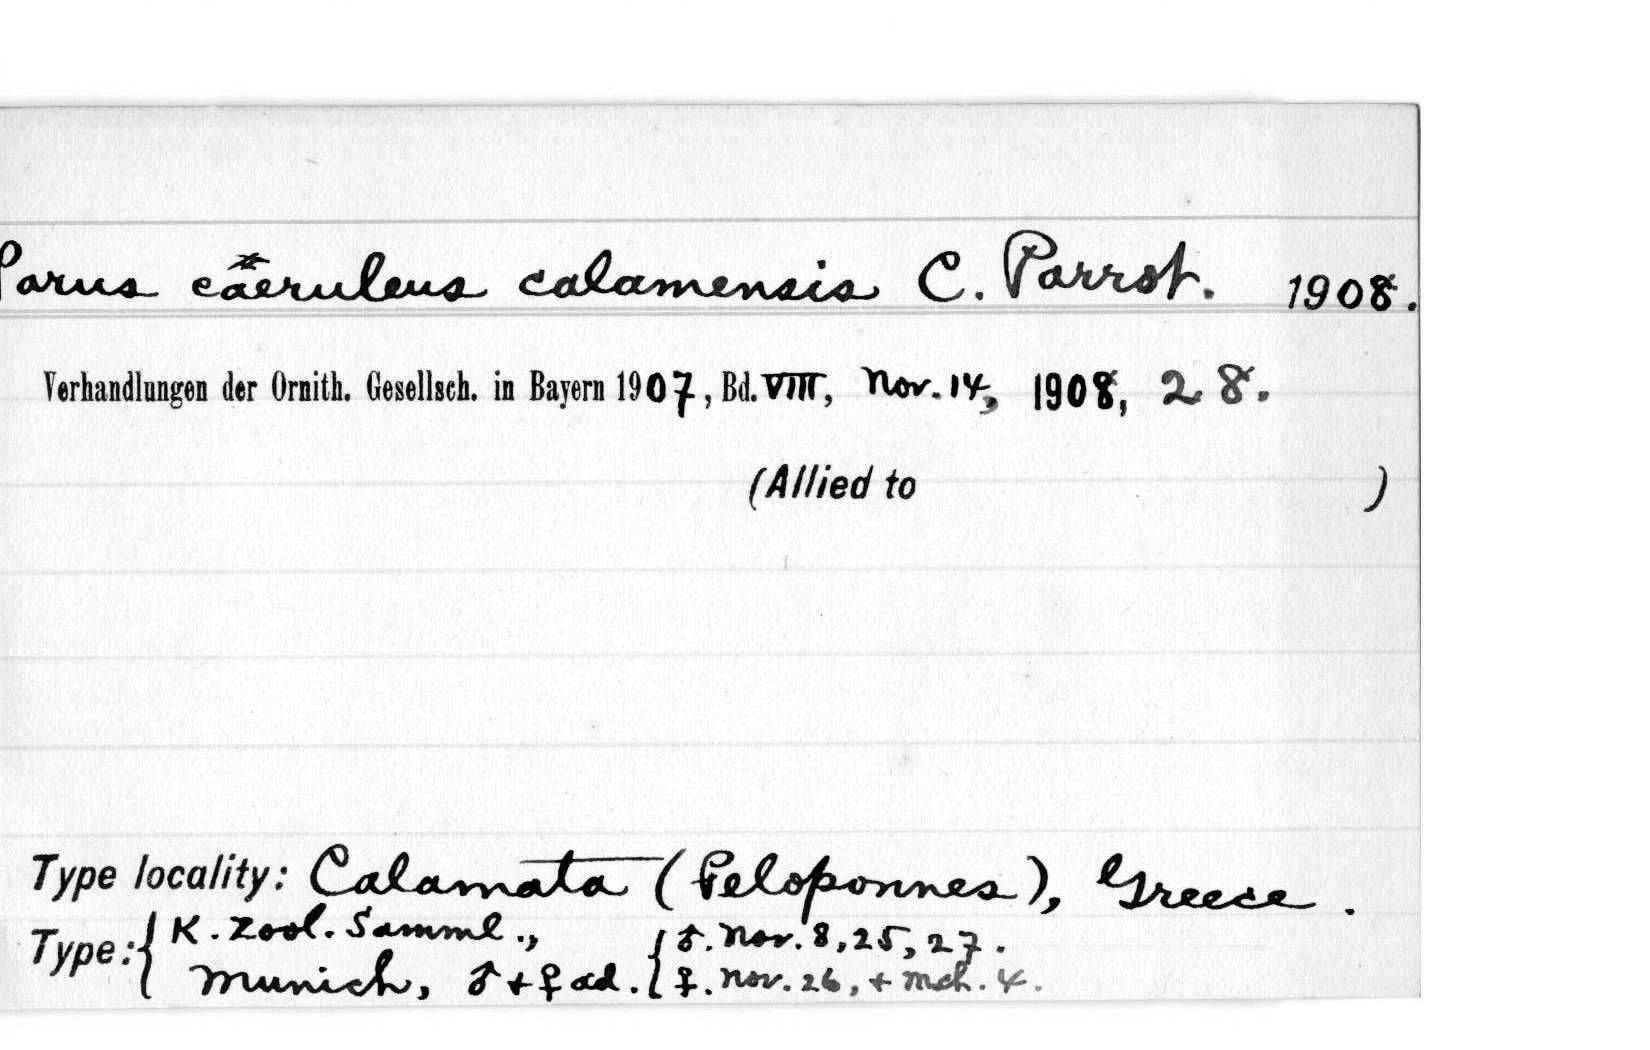 Parus caeruleus calamensis C. Parrot. 1908.
Verhandlungen der Ornith. Gesellsch. in Bayern 1907, Bd. VIII, Nov. 14, 1908, 28.
(Allied to )
Type locality: Calamata (Peloponnes), Greece.
Type: { K. Zool. Samml., { ♂. Nov. 8, 25, 27.
Munich, ♂ + ♀ ad. { ♀. Nov. 26, + Mch. 4.